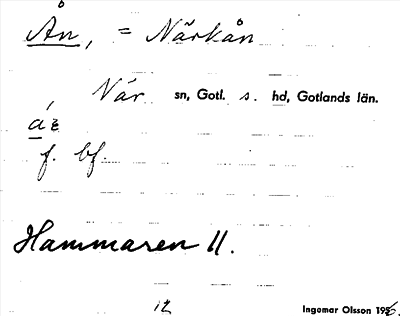 Ån, = Närkån
När sn, Gotl. s. hd, Gotlands län.
f. bf.
Hammaren 11.
Ingemar Olsson 195